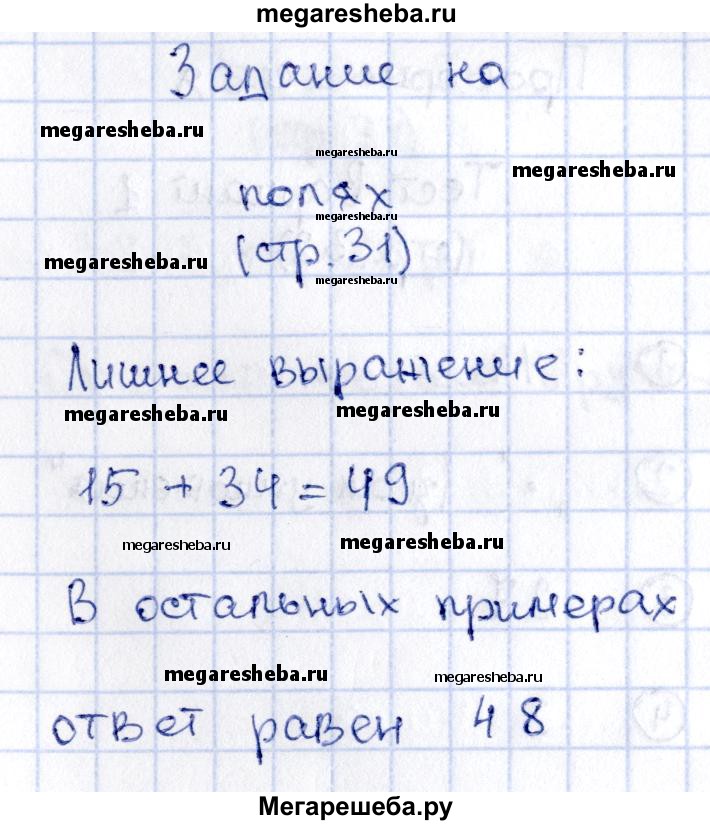 megaresheba.ru
Задание на
megaresheba.ru
megaresheba.ru
megaresheba.ru
полях
megaresheba.ru
(стр. 31)
megaresheba.ru
megaresheba.ru
Лишнее выражение:
megaresheba.ru
megaresheba.ru
15 + 34 = 49
megaresheba.ru
megaresheba.ru
В остальных примерах
megaresheba.ru
megaresheba.ru
ответ равен 48
Мегарешеба.ру